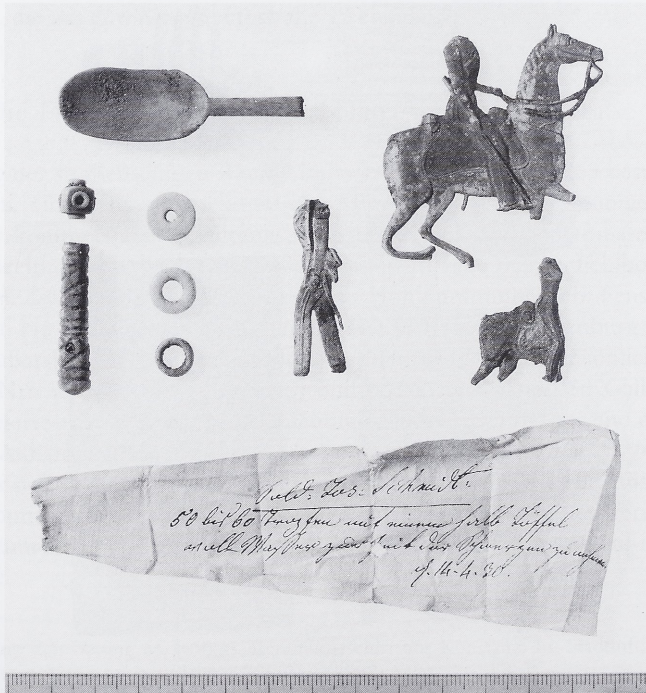 Sold. Jos. Schmidt.
50 bis 60 Tropfen mit einem halb Löffel
voll Wasser zur Zeit der Schmerzen zu nehmen
14.4.30.